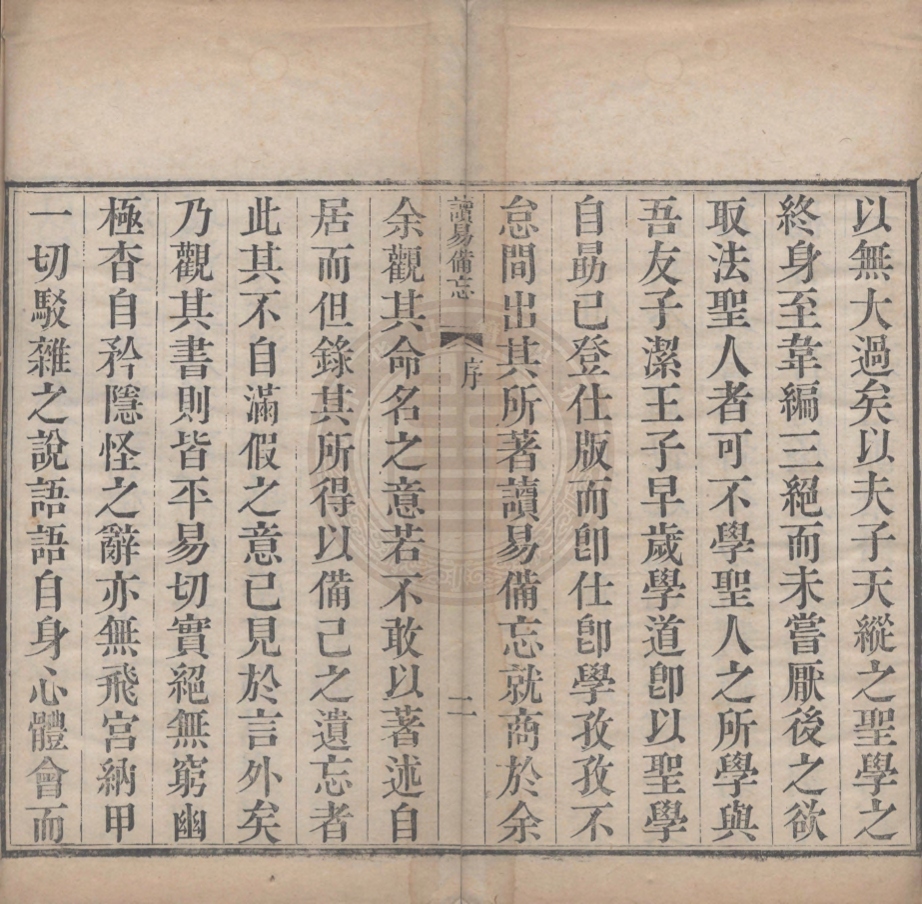 以無大過矣以夫子天縱之聖學之
終身至韋編三絕而未嘗厭後之欲
取法聖人者可不學聖人之所學與
吾友子潔王子早歲學道卽以聖學
自勗已登仕版而卽仕卽學孜孜不
怠間出其所著讀易備忘就商於余
讀易備忘 序 二
余觀其命名之意若不敢以著述自
居而但錄其所得以備己之遺忘者
此其不自滿假之意已見於言外矣
乃觀其書則皆平易切實絕無窮幽
極杳自矜隱怪之辭亦無飛宮納甲
一切駁雜之說語語自身心體會而